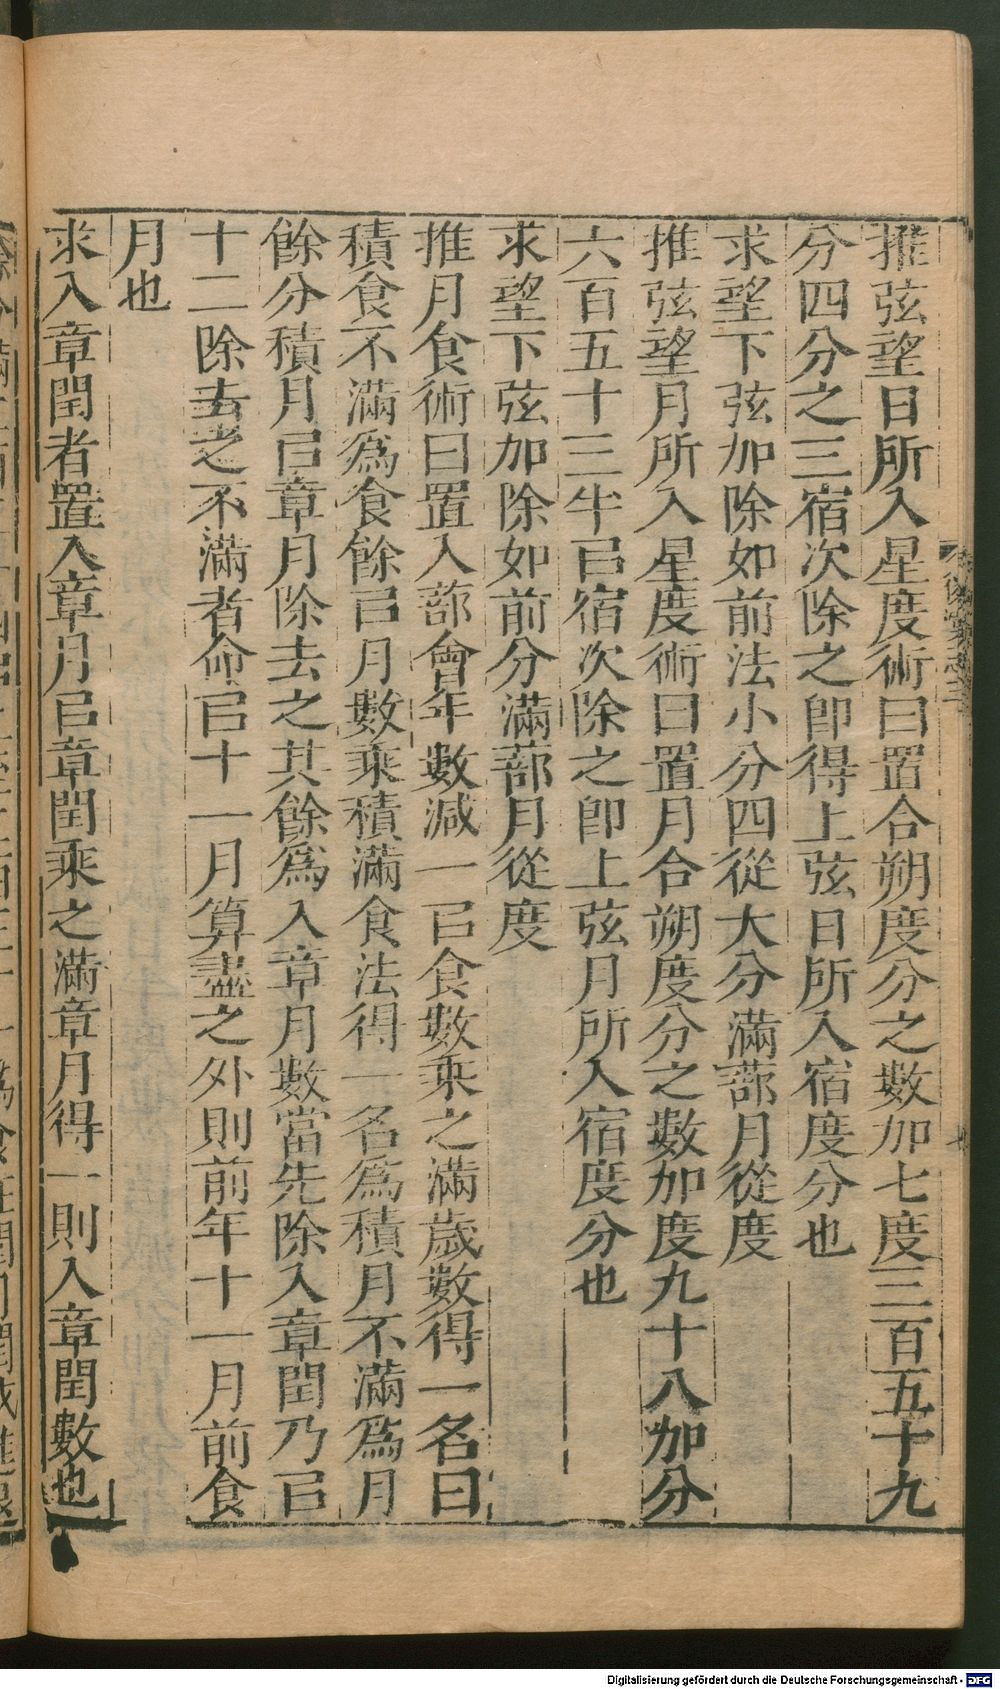 推弦望日所入星度術曰置合朔度分之數加七度三百五十九
分四分之三宿次除之卽得上弦日所入宿度分也
求望下弦加除如前法小分四從大分滿蔀月從度
推弦望月所入星度術曰置月合朔度分之數加度九十八加分
六百五十三半㠯宿次除之卽上弦月所入宿度分也
求望下弦加除如前分滿蔀月從度
推月食術曰置入蔀會年數減一㠯食數乘之滿歲數得一名曰
積食不滿爲食餘㠯月數乘積滿食法得一名爲積月不滿爲月
餘分積月㠯章月除去之其餘爲入章月數當先除入章閏乃㠯
十二除去之不滿者命㠯十一月算盡之外則前年十一月前食
月也
求入章閏者置入章月㠯章閏乘之滿章月得一則入章閏數也
Digitalisierung gefördert durch die Deutsche Forschungsgemeinschaft - DFG